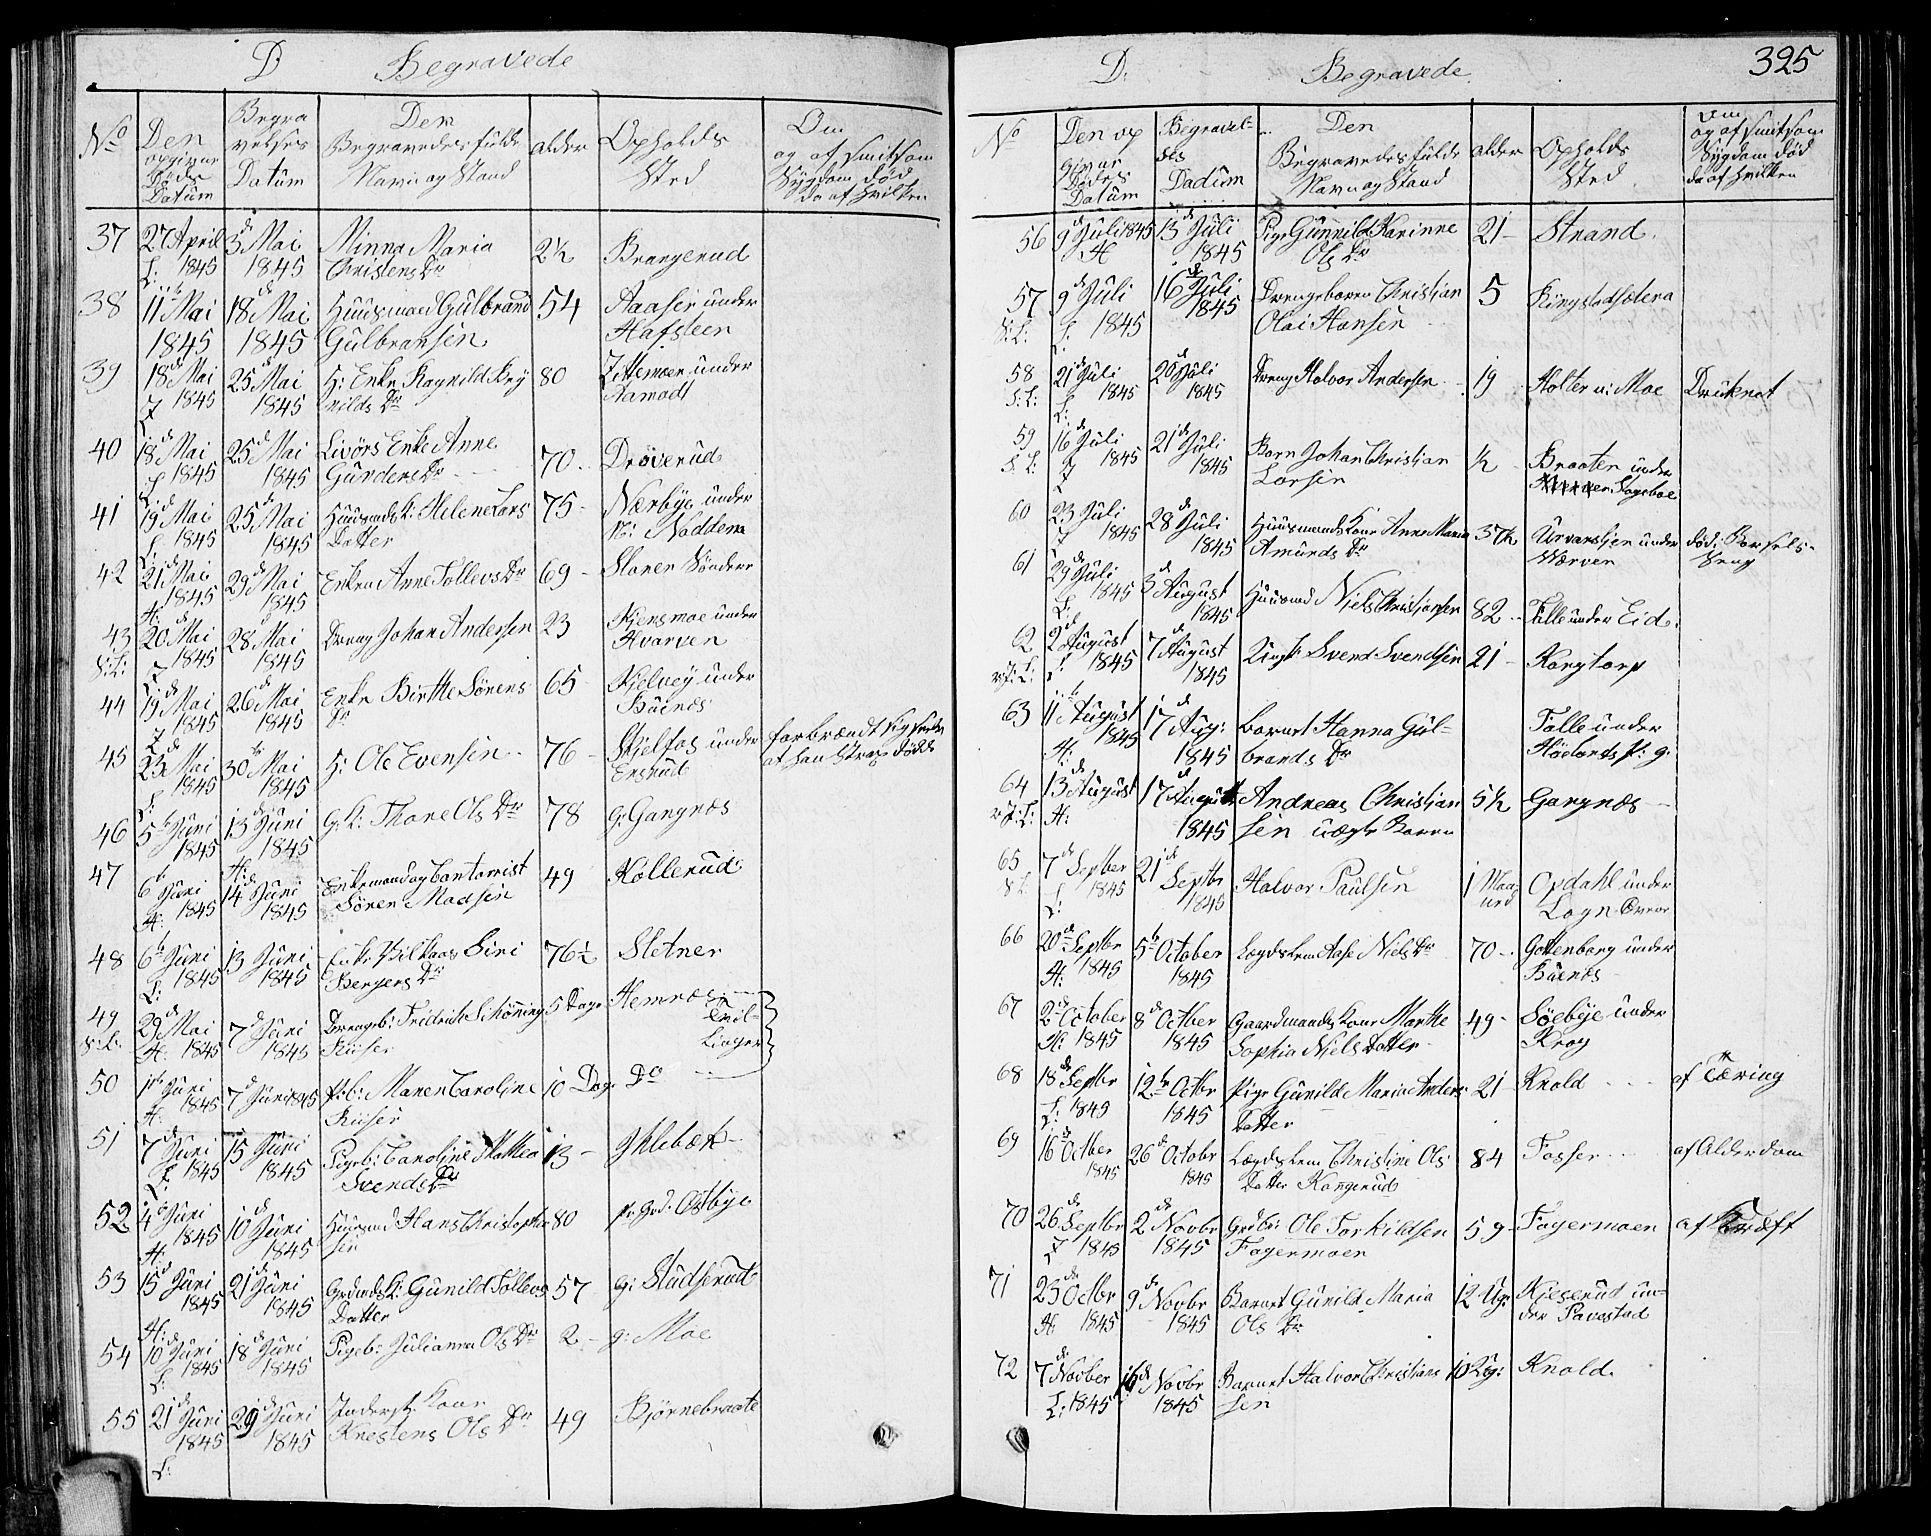 D Begravede
No
Den opgivne Døds Datum
Begravelses Datum
Den Begravedes fulde Navn og Stand
alder
Opholds Sted
Om og af smitsom Sygdom død da af hvilken
37 27 April 1845 3d Mai 1845 Minna Maria Christens Dr 2½ Brangerud
38 11te Mai 1845 18d Mai 1845 Huusmand Gulbrand Gulbransen 54 Aaaser under Hafsteen
39 18d Mai 1845 25d Mai 1845 H: Enke Ragnild Brynilds Dr 80 under Aamodt
40 18d Mai 1845 25d Mai 1845 Enke Anne Gunders Dr 70 Drøverud
41 19d Mai 1845 25d Mai 1845 Helene Lars Datter 75 Nærbye under N: Naddem
42 21d Mai 1845 29d Mai 1845 Enken Anne Tollevs Dr 69 Sloren Søndere
43 20d Mai 1845 28d Mai 1845 Dreng Johan Andersen 23 Kjensmoe under Hvarven
44 19d Mai 1845 26d Mai 1845 Enke Birthe Sørens Dr 65 Kjelvey under Baénæs
45 23d Mai 1845 30te Mai 1845 H: Ole Evensen 76 Skjelfos under Ensrud forbrændt sig at han strax døde
46 5te Juni 1845 13d Juni 1845 G: K: Thore Ols Dr 78 G: Gangnæs
47 6te Juni 1845 14d Juni 1845 Enkemand og Søren Madsen 49 Kollerud
48 6te Juni 1845 13 Juni 1845 Enke Siri Bergers Dr 76½ Sletner
49 29d Mai 1845 7d Juni 1845 Drengeb: Fridrich Schønning Riiser 5 Dage Hemnæs Tvillinger
50 1ste Juni 1845 7d Juni 1845 P: b: Maren Caroline Riiser 10 Dage Do
51 7d Juni 1845 15 Juni 1845 Pigeb: Caroline Mathea Svends Dr 13
52 4de Juni 1845 10d Juni 1845 Huusmd Hans Christophersen 80 Østbye
53 15d Juni 1845 21d Juni 1845 Grdmds K: Gunild Tollevs Datter 57 G: Studserud
54 10d Juni 1845 18d Juni 1845 Pigeb: Julianna Ols Dr 2 G: Moe
55 21d Juni 1845 29d Juni 1845 Inderst: Kone Knestens Ols Dr 49 Bjørnebraate
D: Begravede
325
No
Den opgivne Dødes Datum
Begravelses Dadum
Den Begravedes fulde Navn og Stand
alder
Opholds Sted
Om og af smitsom Sygdom død da af hvilken
56 9d Juli 1845 13d Juli 1845 Pige Gunnild Karinne Ols Dr 21 Strand
57 9d Juli 1845 16d Juli 1845 Drengebarn Christian Olai Hansen 5 Ringstadsætera
58 21d Juli 1845 20d Juli 1845 Dreng Halvor Andersen 19 Holter u: Moe Druknet
59 16d Juli 1845 21d Juli 1845 Barn Johan Christian Larsen ½ Braaten under
60 23 Juli 1845 28d Juli 1845 Huusmands Kone Anne Maria Amunds Dr 37½ under Warven død i Barsels-Seng
61 29d Juli 1845 3d August 1845 Huusmd Niels Christiansen 82 Tille under Eid
62 2d August 1845 7d August 1845 Ungk: Svend Svendsen 21 Kragtorp
63 11te August 1845 17d Aug: 1845 barnet Hanna Gulbrands Dr Folle under Høelands P: g:
64 13d August 17d August 1845 Andreas Christiansen uægte Barn 5½ Gangnæs
65 7d Septber 1845 21d Septbr 1845 Halvor Paulsen 1 Maaned Opdahl under Løgn Øvre
66 20d Septbr 1845 5te October 1845 Lægdslem Aase Niels Dr 70 Gottenborg under Baénæs
67 2d October 1845 8d Octber 1845 Gaardmands Kone Marthe Sophia Niels Datter 49 Søebye under Krog
68 18d Septbr 1845 12te Octbr 1845 Pige Gunilde Maria Anders Datter 21 Knold af Tæring
69 16d Octber 1845 26d Octobr 1845 Lægdslem Christine Ols Datter Kongerud 84 Fosser af Alderdom
70 26d Septbr 1845 2d Novbr 1845 Grdbr: Ole Torkildsen Fagermoen 59 Fagermoen af Kræft
71 23d Octbr 1845 9d Novbr 1845 Barnet Gunild Maria Ols Dr 12 Uger Kjeserud under Pavestad
72 7d Novber 1845 16d Novbr 1845 Barnet Halvor Christiansen 10 Ug: Knold